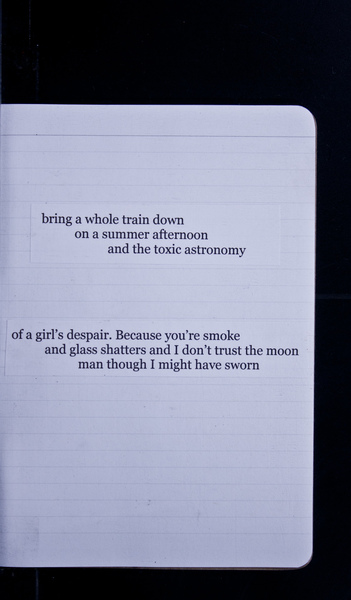 bring a whole train down
on a summer afternoon
and the toxic astronomy
of a girl’s despair. Because you’re smoke
and glass shatters and I don’t trust the moon
man though I might have sworn